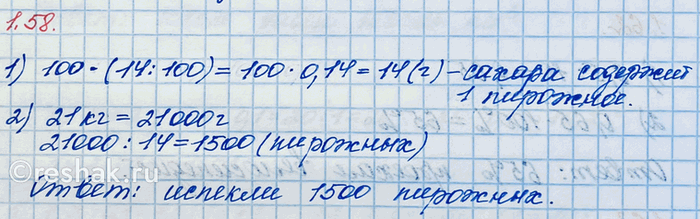 1.58.
1) 100 · (14 : 100) = 100 · 0,14 = 14 (г) – сахара содержит
1 пирожное.
2) 21 кг = 21000 г
21000 : 14 = 1500 (пирожных)
Ответ: испекли 1500 пирожных.
reshak.ru